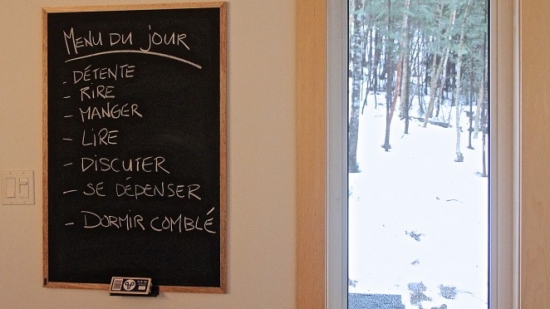 MENU DU JOUR
- DÉTENTE
- RIRE
- MANGER
- LIRE
- DISCUTER
- SE DÉPENSER
- DORMIR COMBLÉ